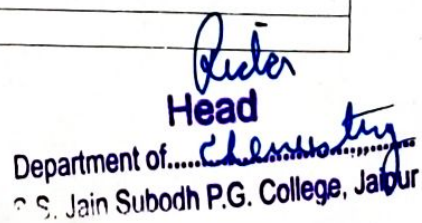 Head
Department of.....Chemistry.....
S. Jain Subodh P.G. College, Jaipur